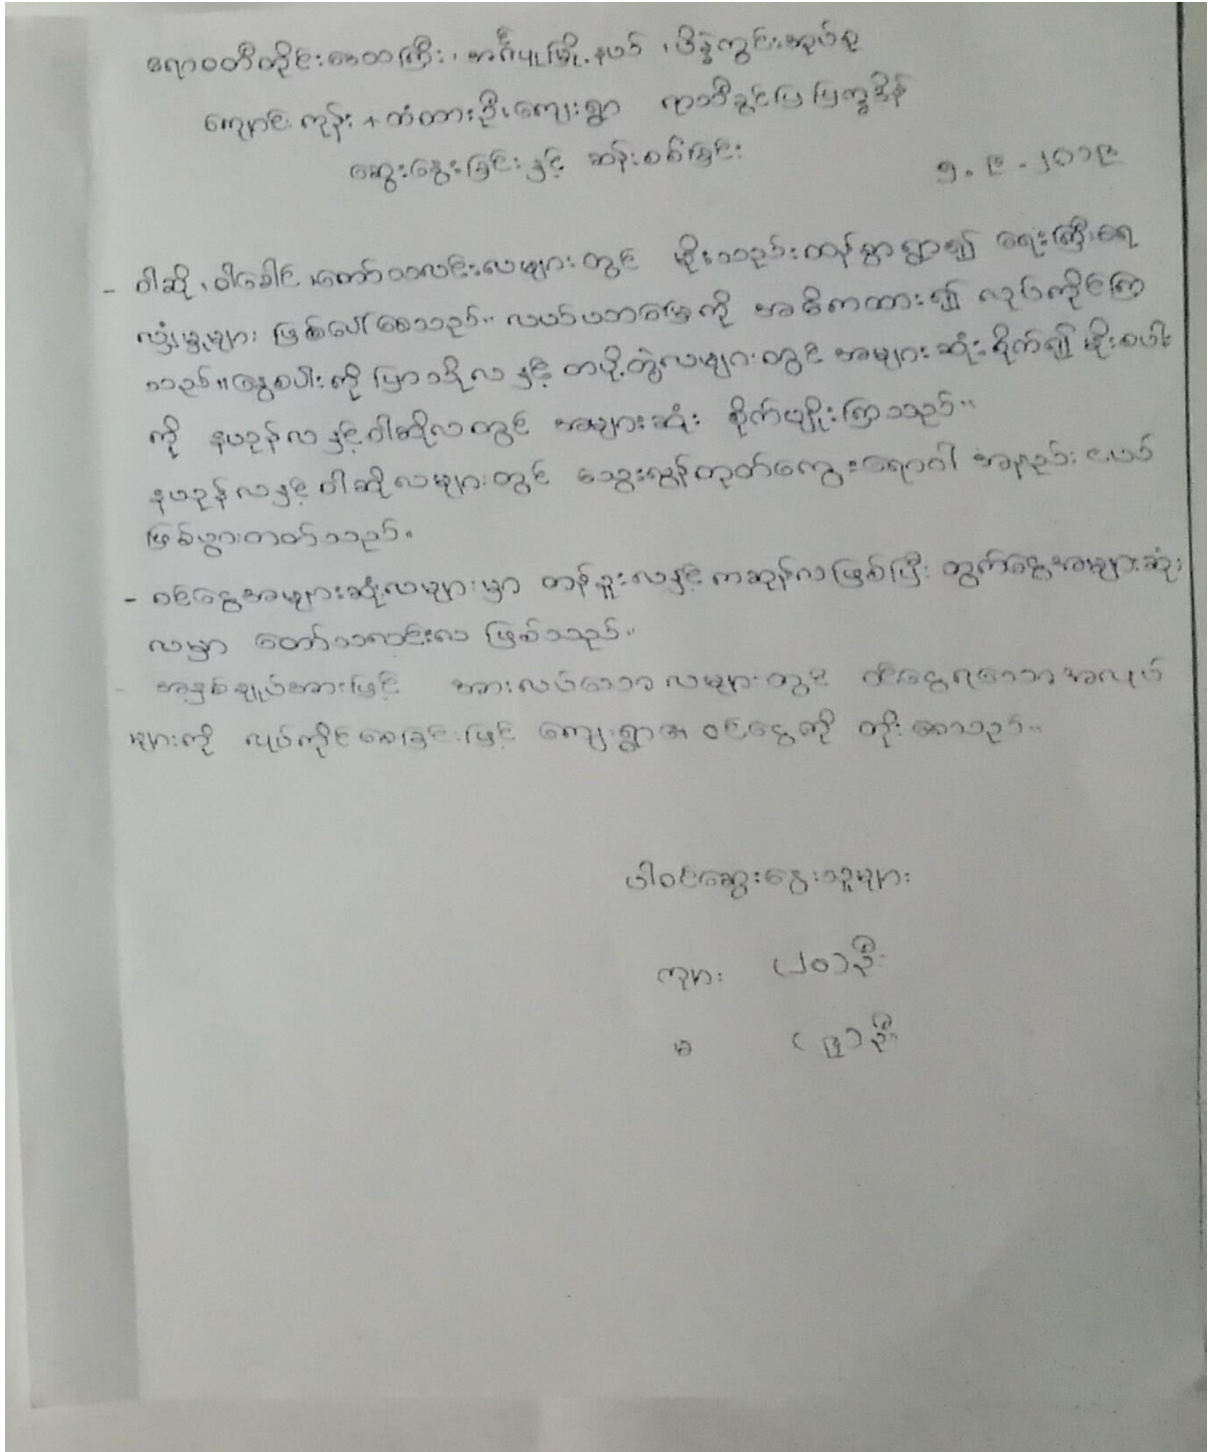 ဧရာဝတီတိုင်းဒေသကြီး၊ အင်္ဂပူမြို့နယ် ၊ ပိန္နဲကွင်းအုပ်စု
ကျောင်းကုန်း + တံတားဦးကျေးရွာ ရာသီခွင်ပြ ပြက္ခဒိန်
ဆွေးနွေးခြင်းနှင့် ဆန်းစစ်ခြင်း
၅.၉.၂၀၁၉
- ဝါဆို၊ ဝါခေါင်၊ တော်သလင်းလများတွင် မိုးသည်းထန်စွာရွာ၍ ရေးကြီးရေ
လျှံမှုများ ဖြစ်ပေါ်စေသည်။ လယ်ယာမြေကို အဓိကထား၍ လုပ်ကိုင်ကြ
သည်။ နွေစပါးကို ပြာသိုလနှင့် တပို့တွဲလများတွင် အများဆုံးစိုက်၍ မိုးစပါး
ကို နယုန်လနှင့်ဝါဆိုလတွင် အများဆုံး စိုက်ပျိုးကြသည်။
နယုန်လနှင့် ဝါဆိုလများတွင် သွေးလွန်တုတ်ကွေးရောဂါ အနည်းငယ်
ဖြစ်ပွားတတ်သည်။
- ဝင်ငွေအများဆုံးလများမှာ တန်ခူးလနှင့်ကဆုန်လဖြစ်ပြီး ထွက်ငွေအများဆုံး
လမှာ တော်သလင်းလ ဖြစ်သည်။
- အနှစ်ချုပ်အားဖြင့် အားလပ်သော လများတွင် ဝင်ငွေရသောအလုပ်
များကို လုပ်ကိုင်စေခြင်းဖြင့် ကျေးရွာ၏ ဝင်ငွေကို တိုးစေသည်။
ပါဝင်ဆွေးနွေးသူများ
ကျား (၂၀)ဦး
မ (၉)ဦး